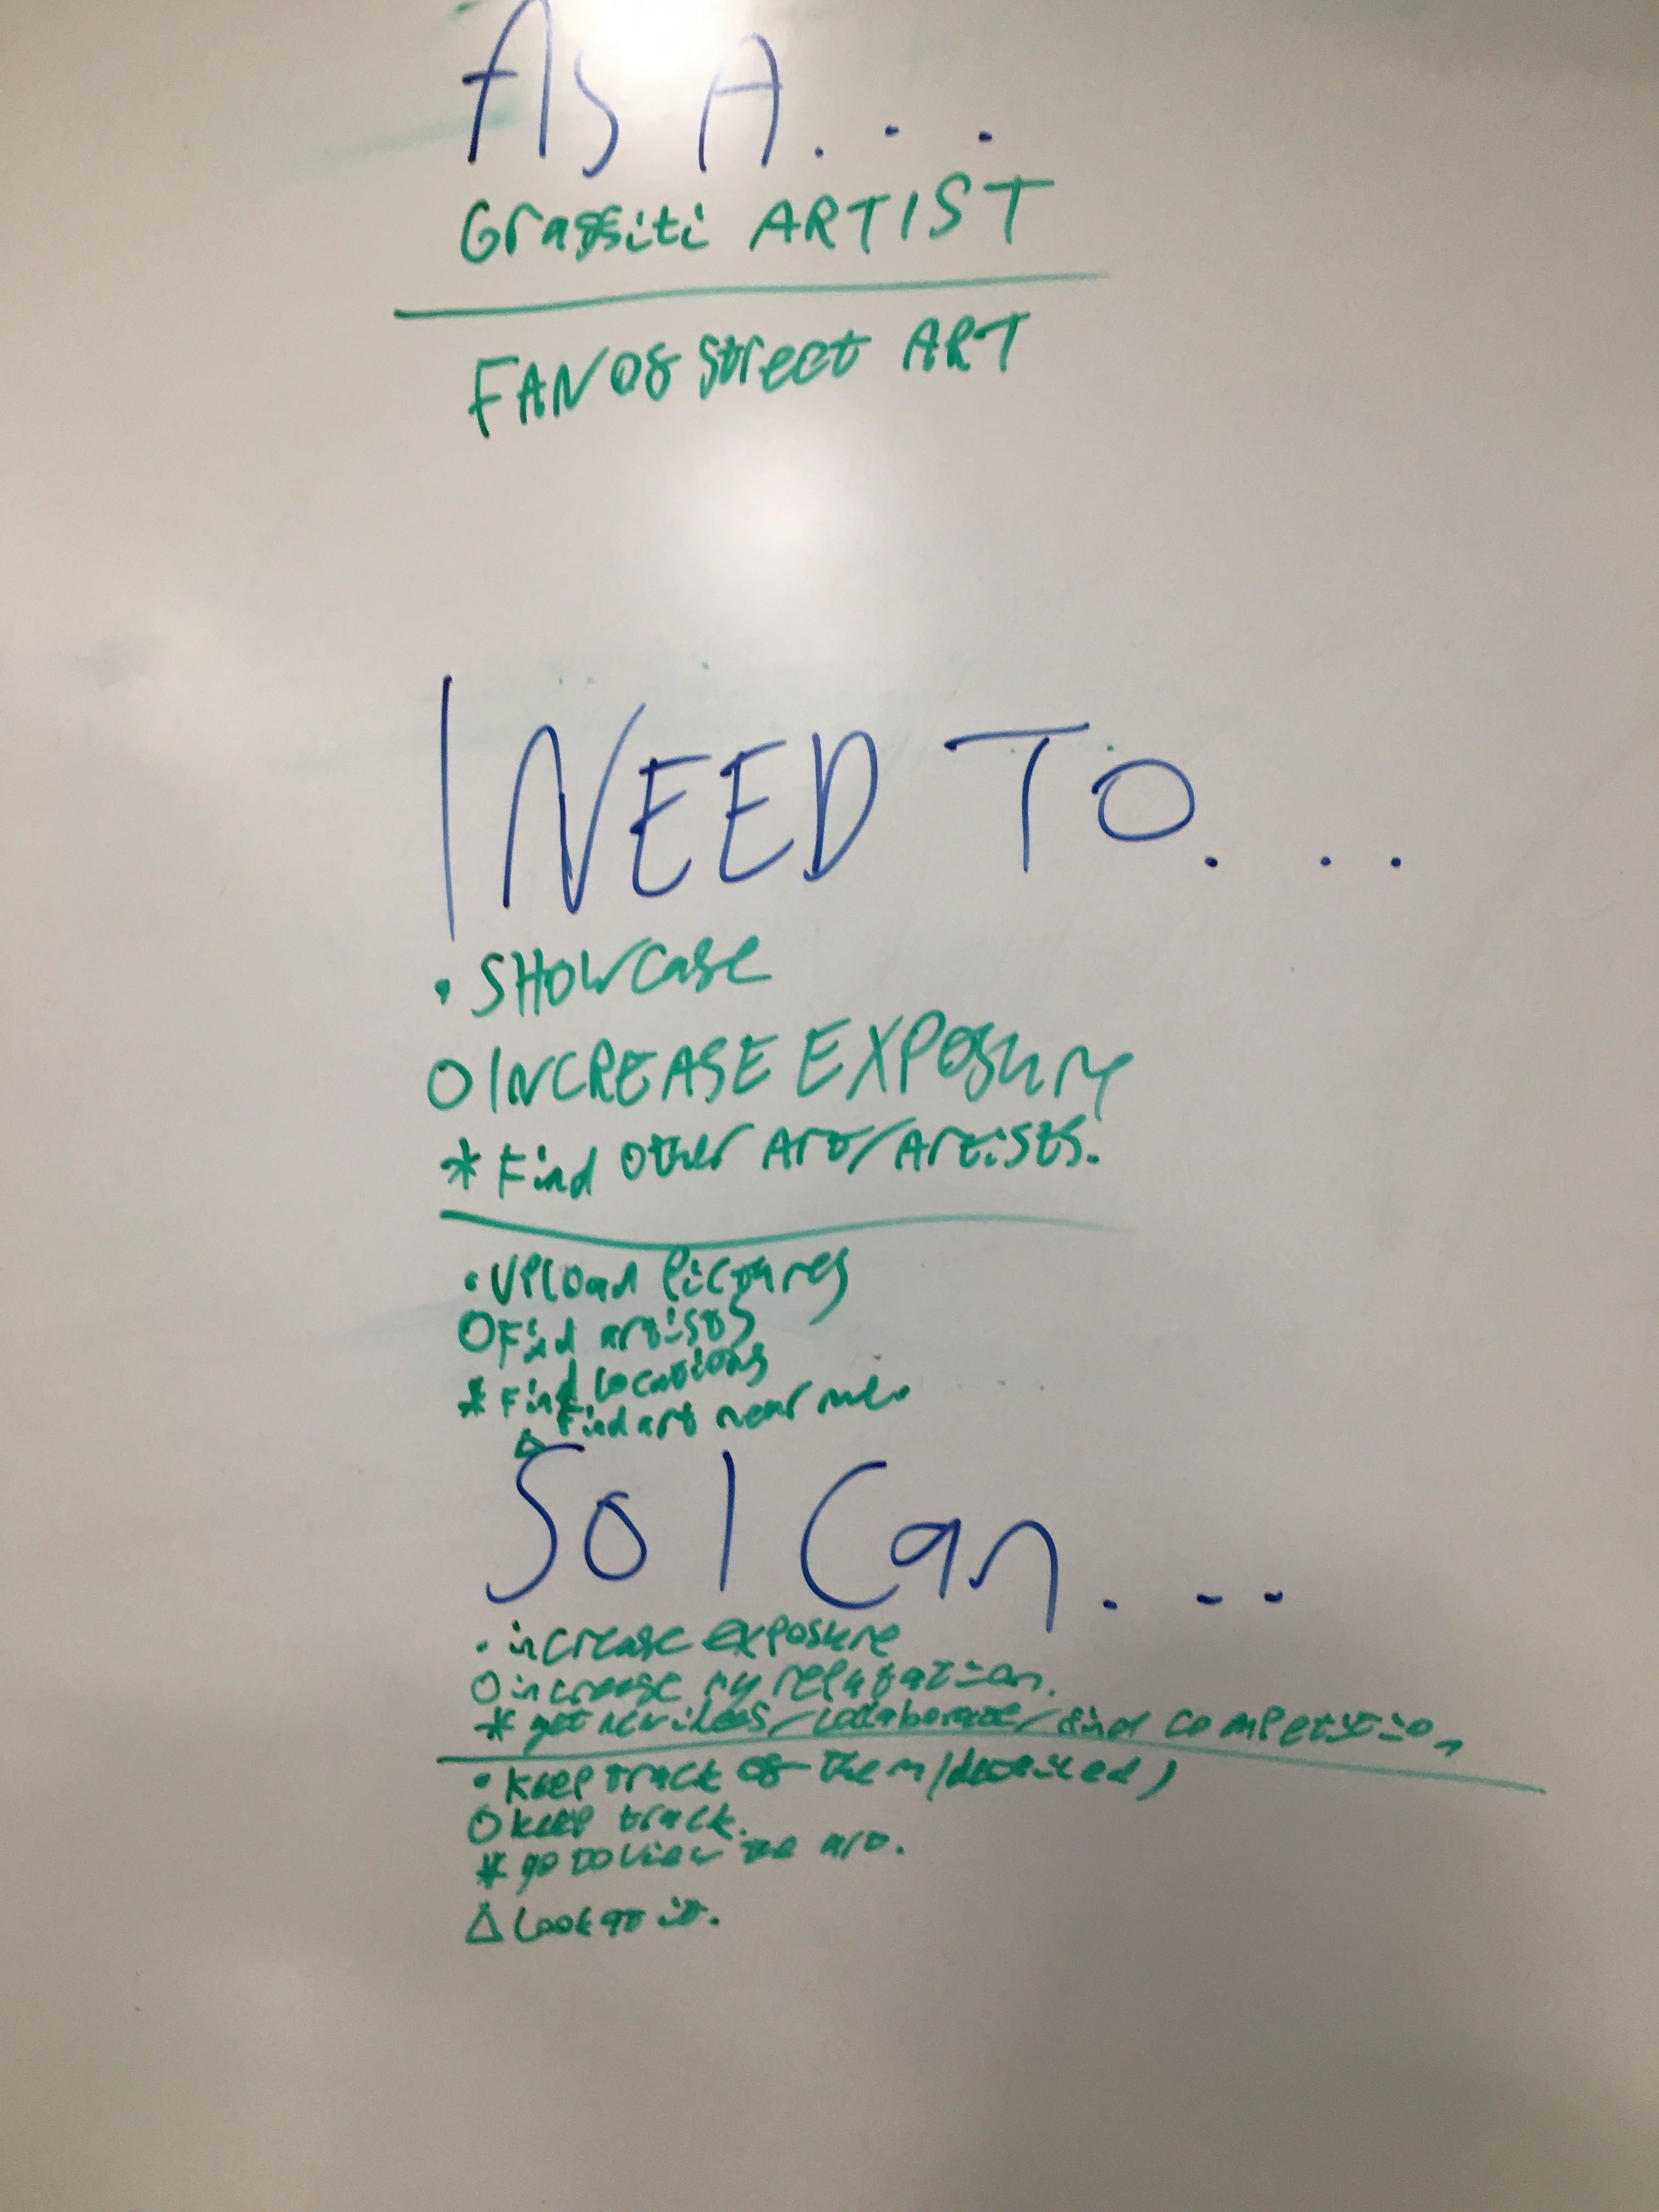 AS A...
Graffiti ARTIST
FAN OF Street ART
I NEED TO...
• SHOWCase
O INCREASE EXPOSURE
* Find other Art/Artists.
• Upload Pictures
O Find artists
* Find locations
△ Find art near me.
So I Can...
• increase exposure
O increase my reputation.
* get new ideas/collaborate/find competition
• keep track of them (detailed)
O keep track.
* go to view the art.
△ Look at it.